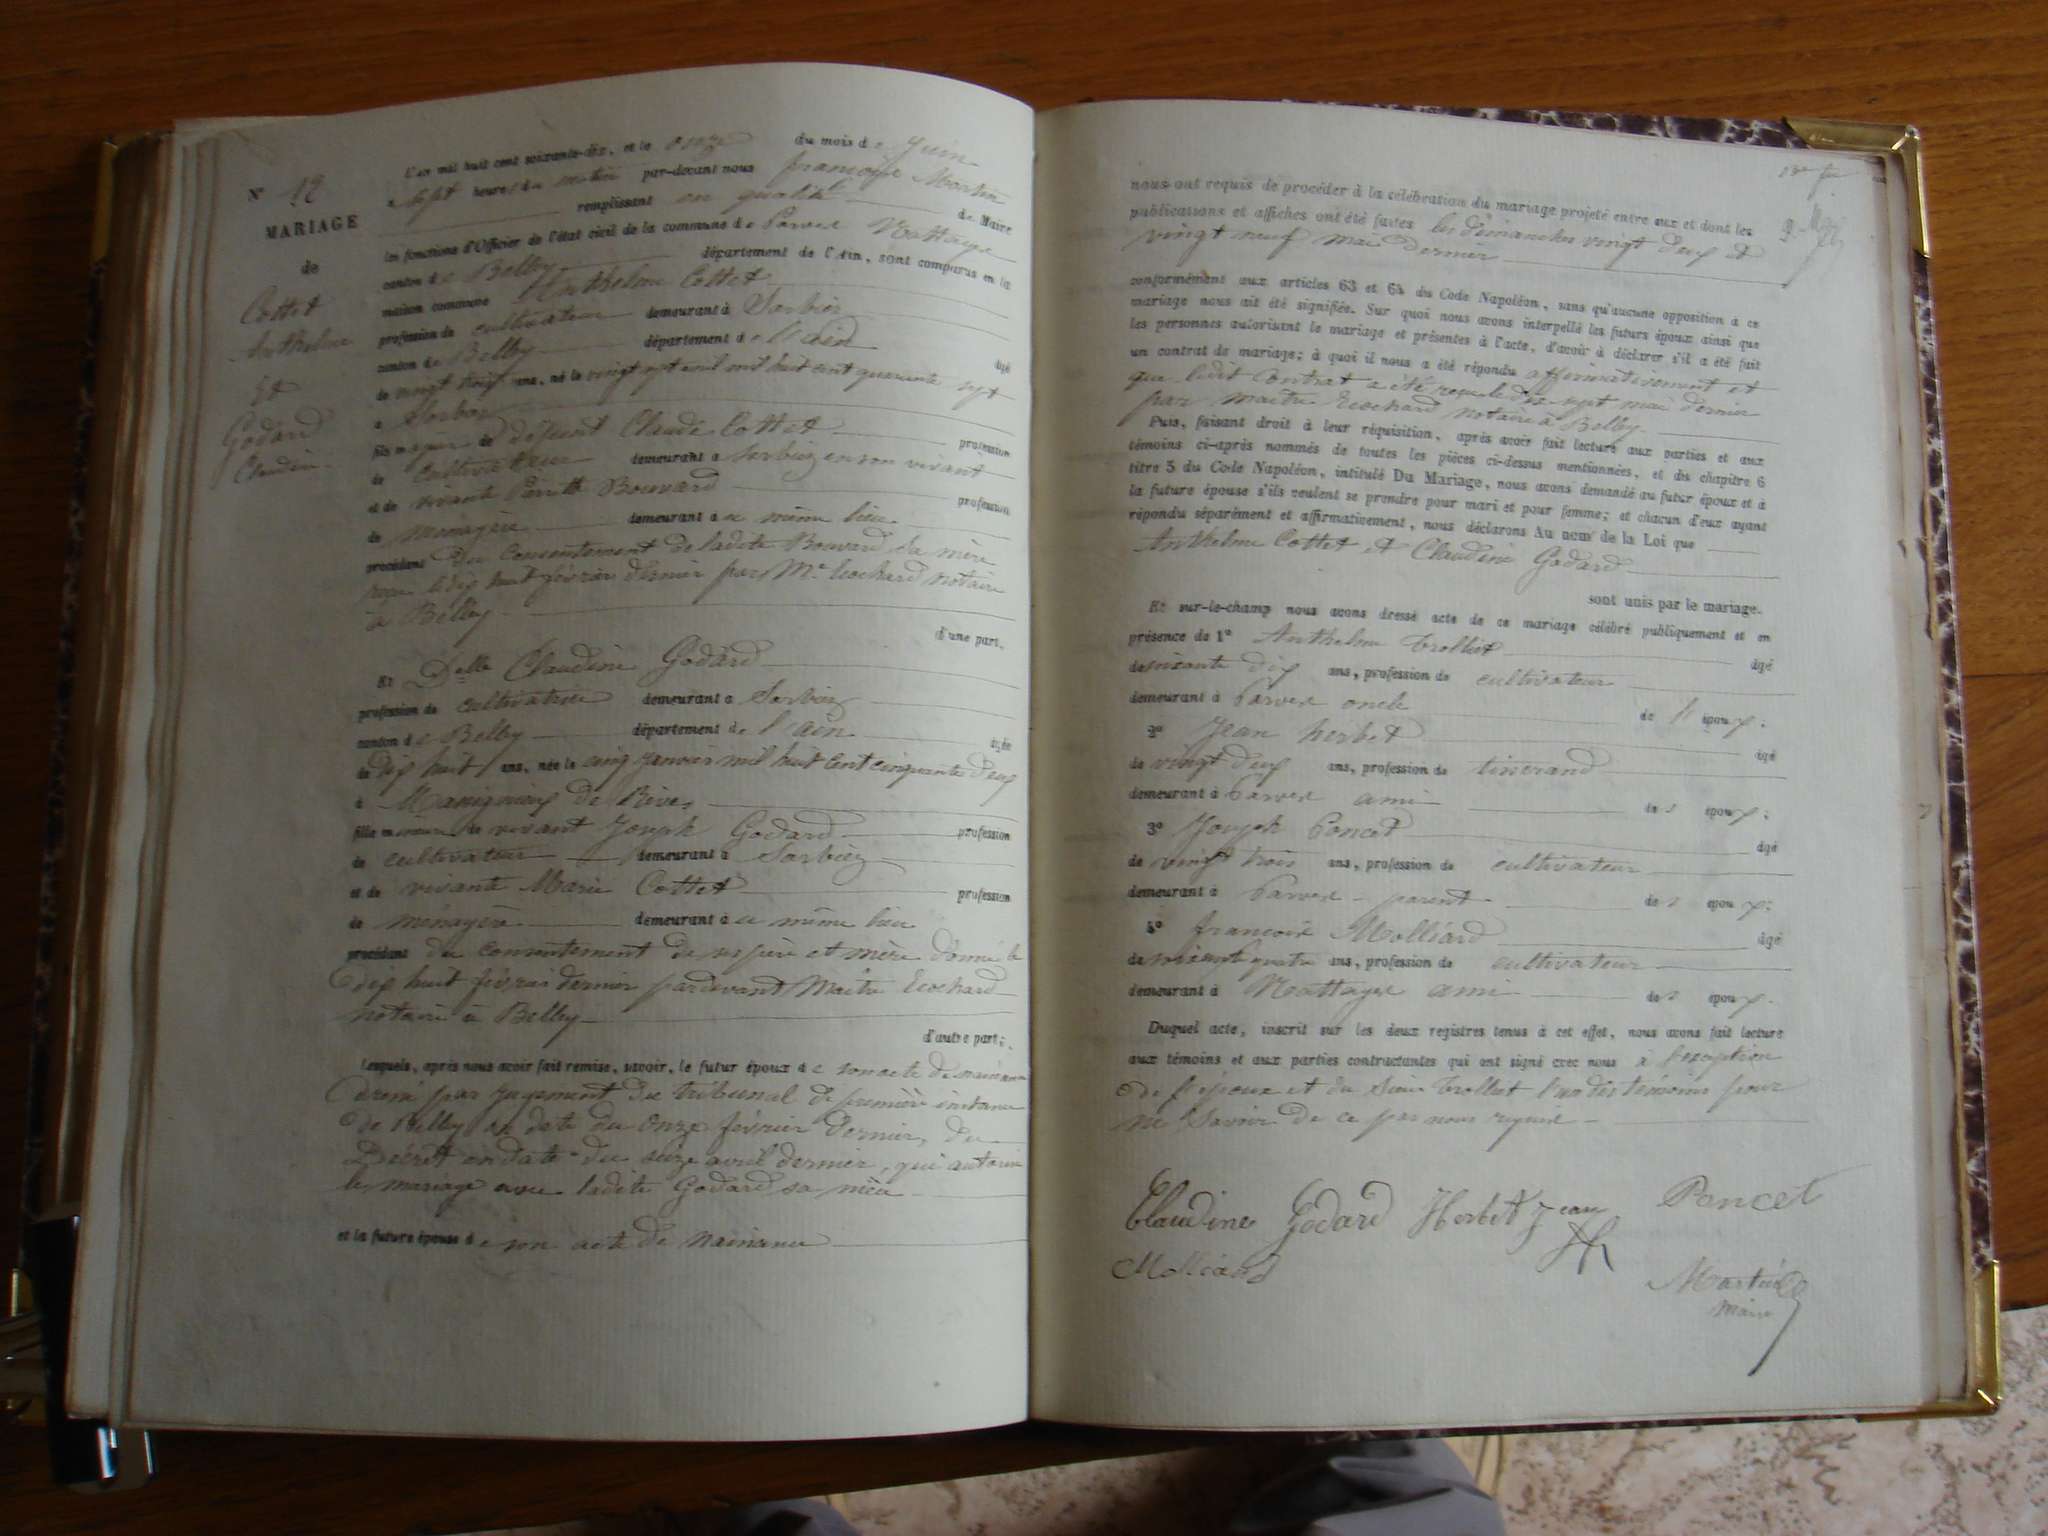 N° 12
MARIAGE
de
Cottet
Anthelme
Et
Godard
Claudine
L'an mil huit cent soixante-dix, et le onze du mois de Juin
à Sept heures du matin par-devant nous françois Martin
remplissant en qualité de Maire
les fonctions d'Officier de l'état civil de la commune de Parves Nattages
canton de Belley département de l'Ain, sont comparus en la
maison commune Anthelme Cottet
profession de cultivateur demeurant à Sorbier
canton de Belley département de l'ain âgé
de vingt trois ans, né le vingt sept avril mil huit cent quarante sept
à
fils majeur de défunt Claude Cottet profession
de cultivateur demeurant à en son vivant
et de vivante Perrette Bouvard profession
de ménagère demeurant à ce même lieu
procédant du consentement de ladite Bouvard sa mère
reçu le dix huit février dernier par Me notaire
à Belley
d'une part.
Et Delle Claudine Godard
profession de cultivatrice demeurant à
canton de Belley département de l'ain âgée
de dix huit ans, née le cinq janvier mil huit cent cinquante deux
à Massignieu de Rives
fille mineure de vivant Joseph Godard profession
de cultivateur demeurant à
et de vivante Marie Cottet profession
de ménagère demeurant à ce même lieu
procédant du consentement de ses père et mère donné le
dix huit février dernier pardevant Maître
notaire à Belley
d'autre part;
Lesquels, après nous avoir fait remise, savoir, le futur époux de son acte de naissance
par jugement du tribunal de première instance
de Belley en date du onze février dernier, du
Décret en date du seize avril dernier, qui autorise
le mariage avec ladite Godard sa nièce
et la future épouse de son acte de naissance
nous ont requis de procéder à la célébration du mariage projeté entre eux et dont les
publications et affiches ont été faites les dimanches vingt deux et
vingt neuf mai dernier
conformément aux articles 63 et 64 du Code Napoléon, sans qu'aucune opposition à ce
mariage nous ait été signifiée. Sur quoi nous avons interpellé les futurs époux ainsi que
les personnes autorisant le mariage et présentes à l'acte, d'avoir à déclarer s'il a été fait
un contrat de mariage; à quoi il nous a été répondu affirmativement et
que ledit Contrat a été reçu le dix sept mai dernier
par maître notaire à Belley
Puis, faisant droit à leur réquisition, après avoir fait lecture aux parties et aux
témoins ci-après nommés de toutes les pièces ci-dessus mentionnées, et du chapitre 6
titre 5 du Code Napoléon, intitulé Du Mariage, nous avons demandé au futur époux et à
la future épouse s'ils veulent se prendre pour mari et pour femme; et chacun d'eux ayant
répondu séparément et affirmativement, nous déclarons Au nom de la Loi que
Anthelme Cottet et Claudine Godard
sont unis par le mariage.
Et sur-le-champ nous avons dressé acte de ce mariage célébré publiquement et en
présence de 1° Anthelme Trolliet âgé
de soixante dix ans, profession de cultivateur
demeurant à Parves oncle de l'époux;
2° Jean herbet âgé
de vingt deux ans, profession de tisserand
demeurant à Parves ami des époux;
3° Joseph Poncet âgé
de vingt trois ans, profession de cultivateur
demeurant à Parves parent des époux;
4° françois Molliard âgé
de soixante quatre ans, profession de cultivateur
demeurant à Nattages ami des époux.
Duquel acte, inscrit sur les deux registres tenus à cet effet, nous avons fait lecture
aux témoins et aux parties contractantes qui ont signé avec nous à l'exception
de l'époux et du sieur Trolliet l'un des témoins pour
ne Savoir de ce par nous requis
Claudine Godard Herbet Jean Poncet
Molliard
Martin
Maire